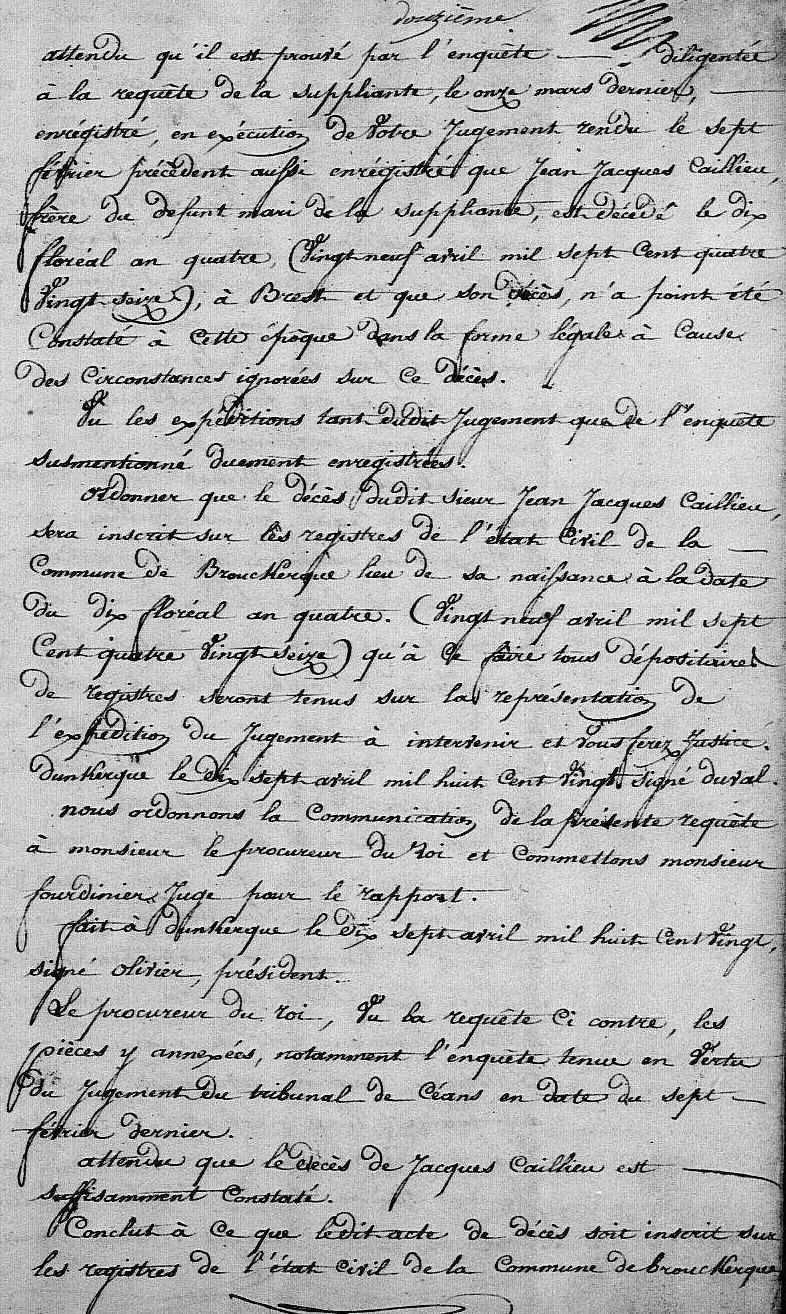 douzième
attendu qu'il est prouvé par l'enquête — diligentée
à la requête de la suppliante, le onze mars dernier, —
enrégistré, en exécution de Votre Jugement rendu le sept
février précédent aussi enrégistré que Jean Jacques Caillieu,
frère du defunt mari de la suppliante, est décédé le dix
floréal an quatre, (Vingt neuf avril mil sept Cent quatre
Vingt seize), à Brest et que son décès, n'a point été
Constaté à Cette époque dans la forme légale à Cause
des Circonstances ignorées sur Ce décès.
Vu les expéditions tant dudit Jugement que de l'enquête
susmentionné duement enregistrées.
ordonner que le décès, dudit sieur Jean Jacques Caillieu,
sera inscrit sur les registres de l'état Civil de la —
Commune de Brouckerque lieu de sa naissance à la date
du dix floréal an quatre. (Vingt neuf avril mil sept
Cent quatre Vingt seize) qu'à Ce faire tous dépositaires
de registres seront tenus sur la représentation de
l'expédition du Jugement à intervenir et Vous ferez Justice.
dunkerque le dix sept avril mil huit Cent Vingt signé duval.
nous ordonnons la Communication de la présente requête
à monsieur le procureur du roi et Commettons monsieur
fourdinier Juge pour le rapport.
fait à dunkerque le dix sept avril mil huit Cent Vingt,
signé olivier, président
Le procureur du roi, Vu la requête Ci contre, les
pièces y annexées, notamment l'enquête tenue en Vertu
du Jugement du tribunal de Céans en date du sept —
février dernier.
attendu que le décès de Jacques Caillieu est —
suffisamment Constaté.
Conclut à Ce que ledit acte de décès soit inscrit sur
les registres de l'état Civil de la Commune de brouckerque